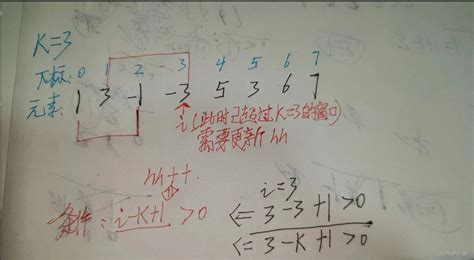 K=3
下标: 0 1 2 3 4 5 6 7
元素: 1 3 -1 -3 5 3 6 7
i (此时已超过K=3的窗口)
需要更新hh
hh++
条件: i-K+1 >0
i=3
<= 3-3+1>0
<= 3-K+1>0